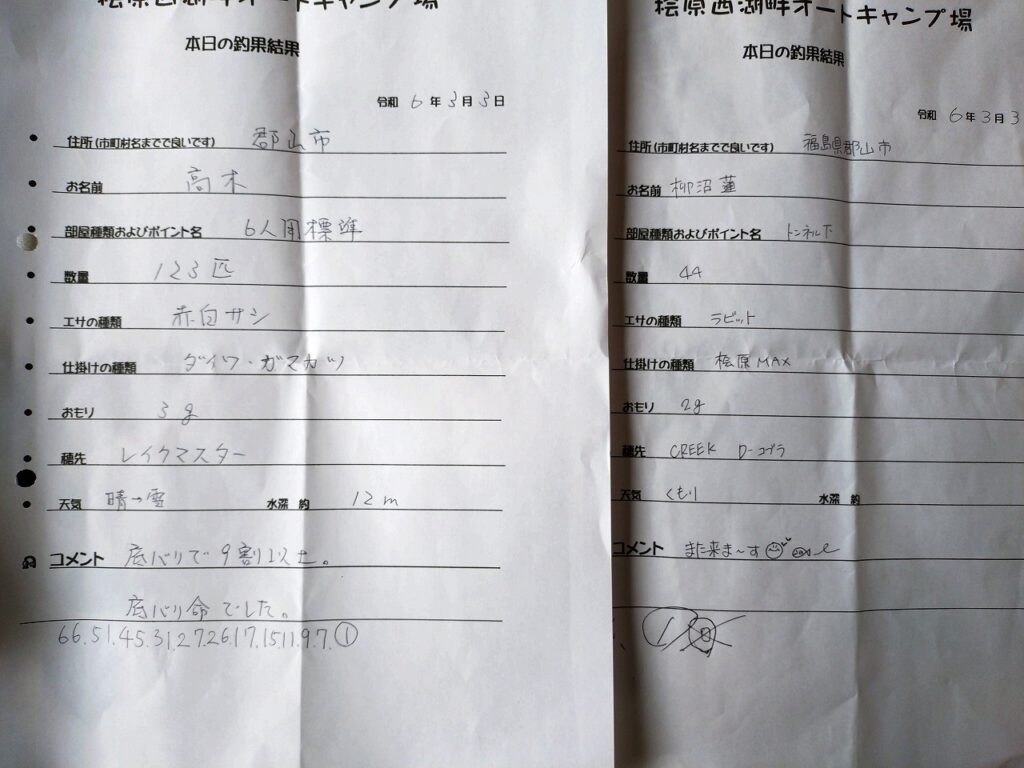 桧原西湖畔オートキャンプ場
本日の釣果結果
令和 6 年 3 月 3 日
住所(市町村名までで良いです) 郡山市
お名前 高木
部屋種類およびポイント名 6人用標準
数量 123匹
エサの種類 赤白サシ
仕掛けの種類 ダイワ・ガマカツ
おもり 3g
穂先 レイクマスター
天気 晴→雪 水深 約 12m
コメント 底バリで9割以上。
底バリ命でした。
66.51.45.31.27.26.17.15.11.9.7.①
桧原西湖畔オートキャンプ場
本日の釣果結果
令和 6 年 3 月 3
住所(市町村名までで良いです) 福島県郡山市
お名前 柳沼蓮
部屋種類およびポイント名 トンネル下
数量 44
エサの種類 ラビット
仕掛けの種類 桧原MAX
おもり 2g
穂先 CREEK D-コブラ
天気 くもり 水深 約
コメント また来ま〜す
1